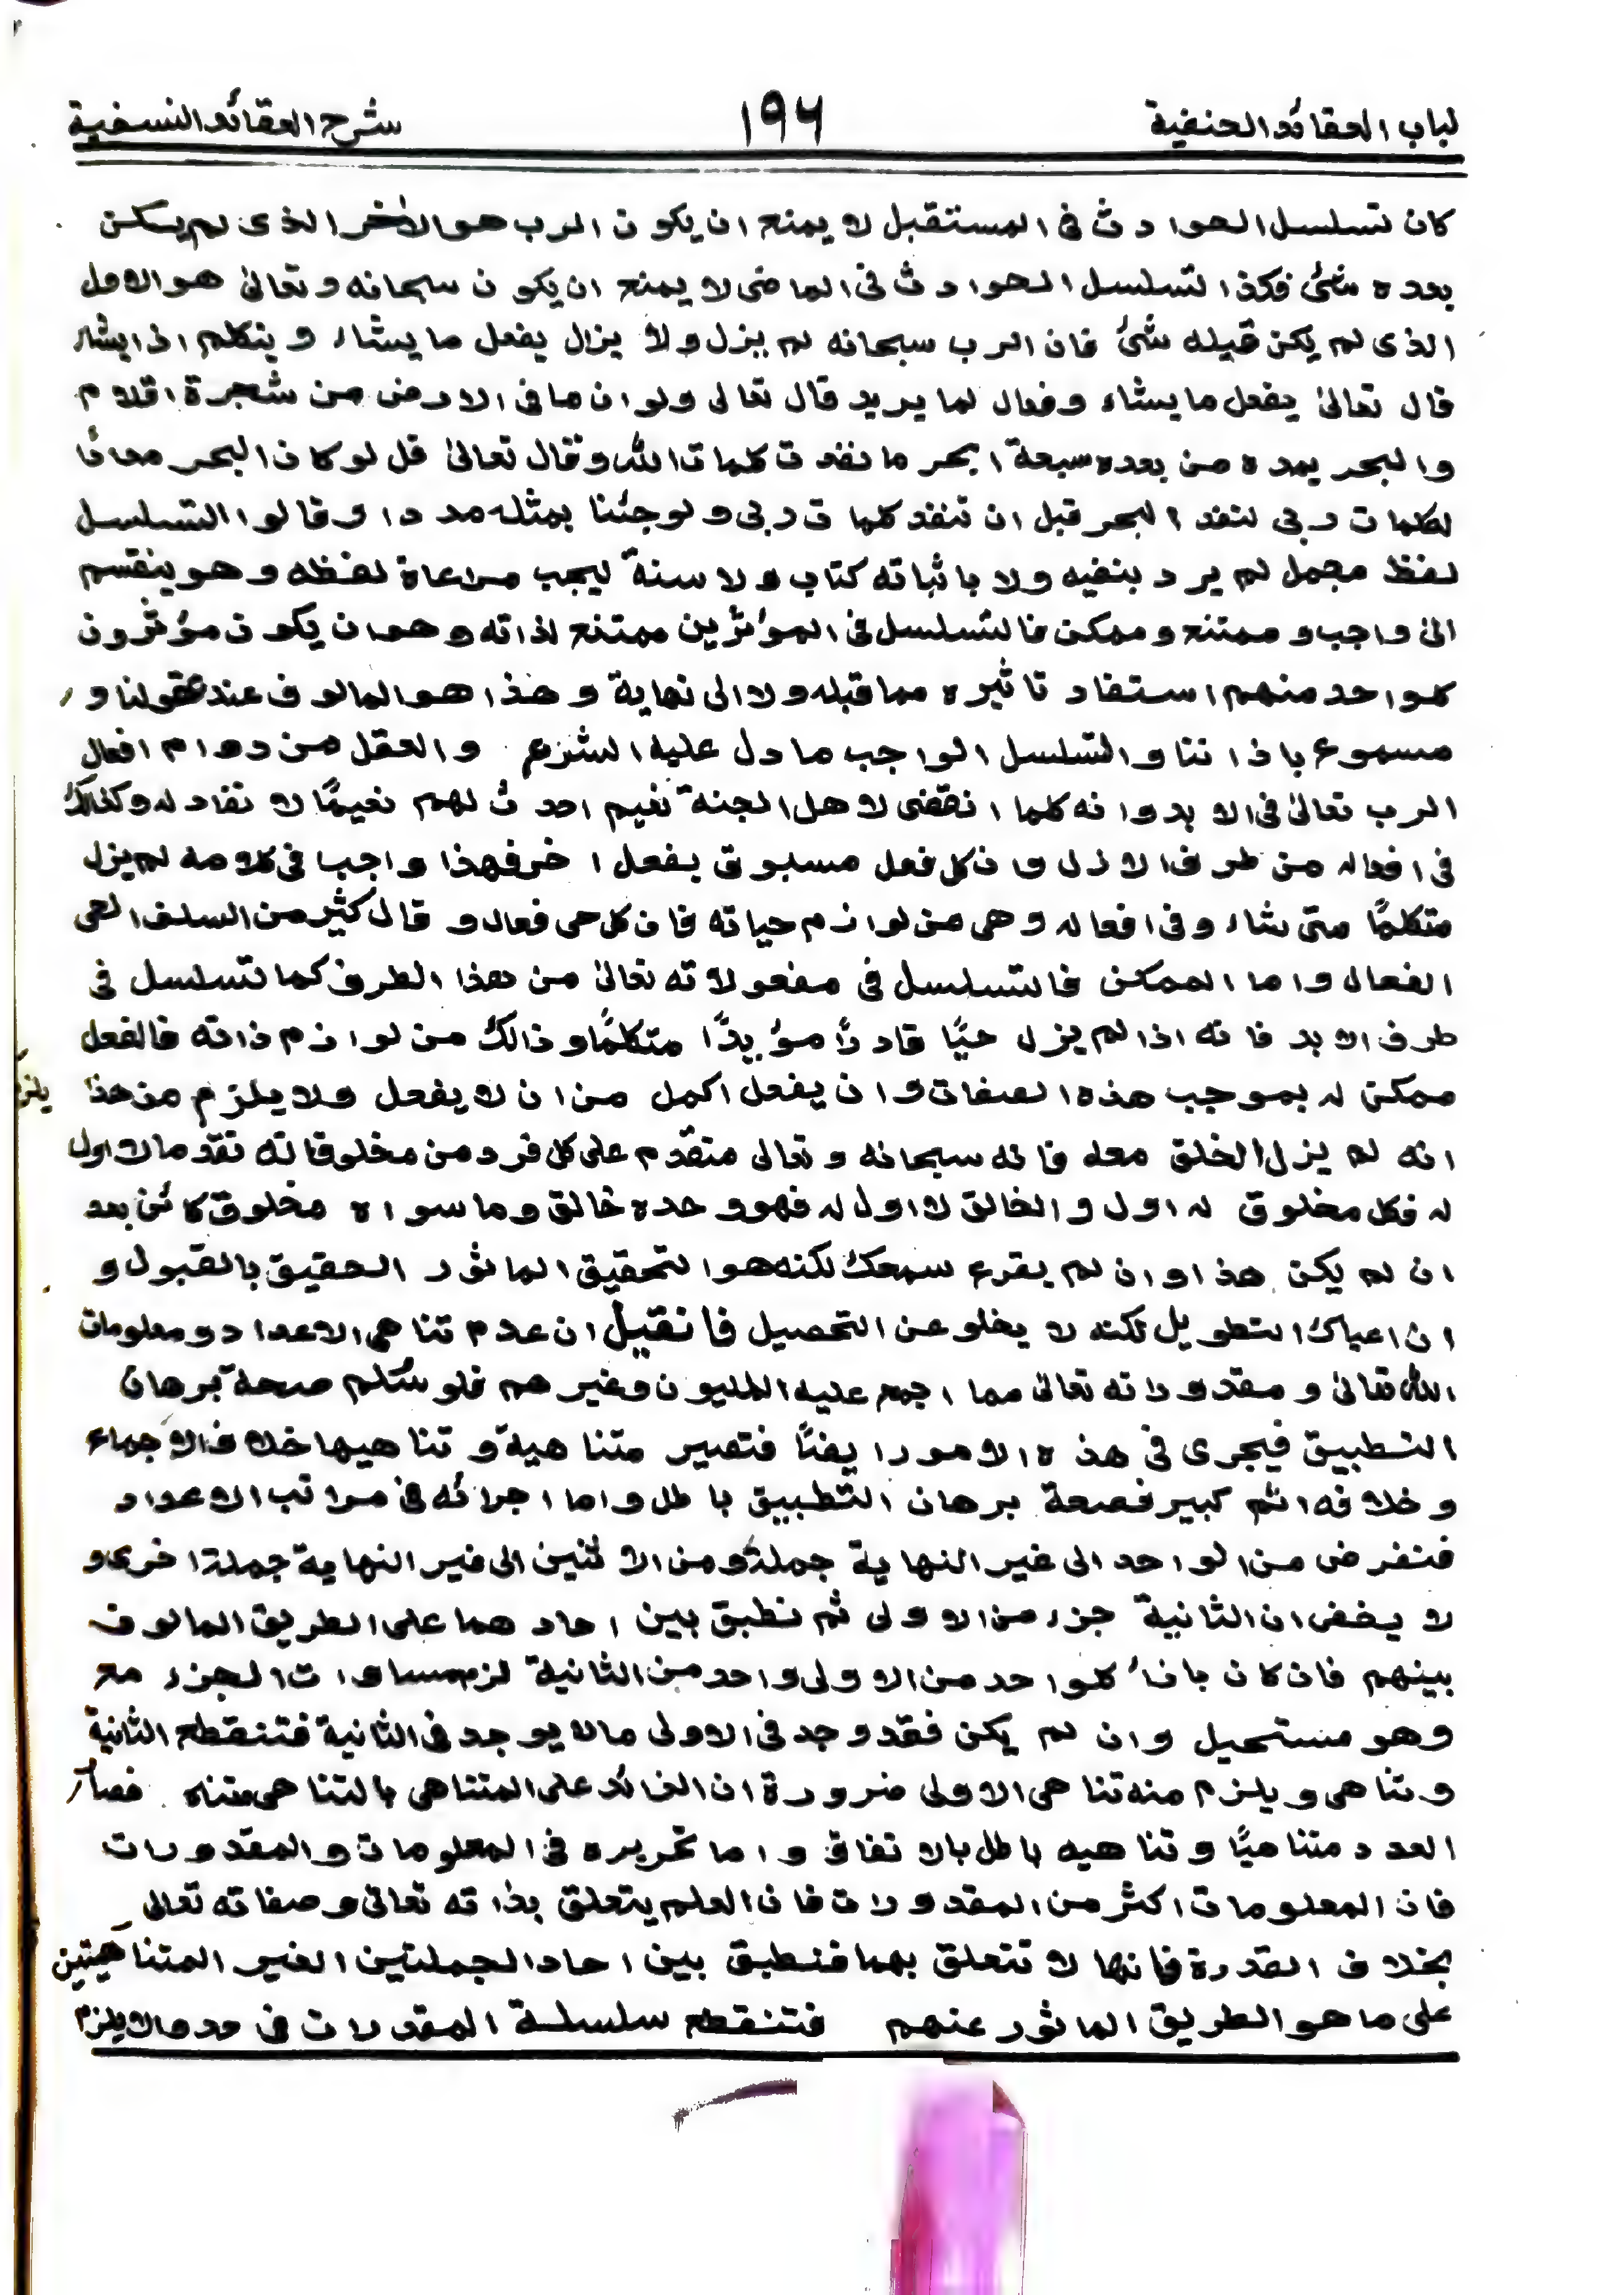 لباب العقائد الحنفية ١٩٦ شرح العقائد النسفية
كان تسلسل الحوادث فى المستقبل لا يمنع ان يكون الرب هو الاٰخر الذى لم يكن
بعده شئ فكذا تسلسل الحوادث فى الماضى لا يمنع ان يكون سبحانه وتعالىٰ هو الاول
الذى لم يكن قبله شئ فان الرب سبحانه لم يزل ولا يزال يفعل ما يشاء و يتكلم اذا يشاء
قال تعالىٰ يفعل ما يشاء وفعال لما يريد قال تعالى ولو ان ما فى الارض من شجرة اقلام
والبحر يمده من بعده سبعة ابحر ما نفدت كلمات الله وقال تعالىٰ قل لو كان البحر مدادًا
لكلمات ربى لنفد البحر قبل ان تنفد كلمات ربى ولو جئنا بمثله مددا وقالوا التسلسل
لفظ مجمل لم يرد بنفيه ولا باثباته كتاب ولا سنة ليجب مراعاة لفظه وهو ينقسم
الىٰ واجب و ممتنع و ممكن فالتسلسل فى المؤثرين ممتنع لذاته وهو ان يكون مؤثرون
كلواحد منهم استفاد تاثيره مما قبله ولا الى نهاية و هٰذا هو المالوف عند عقولنا و
مسموع باٰذاننا والتسلسل الواجب ما دل عليه الشرع والعقل من دوام افعال
الرب تعالىٰ فى الابد وانه كلما انقضى لاهل الجنة نعيم احدث لهم نعيمًا لا نفاد له وكذالك
فى افعاله من طرف الازل وان كل فعل مسبوق بفعل اٰخر فهذا واجب فى كلامه لم يزل
متكلمًا متى شاء وفى افعاله وهى من لوازم حياته فان كل حى فعال و قال كثير من السلف الحى
الفعال واما الممكن فالتسلسل فى مفعولاته تعالىٰ من هذا الطرف كما تسلسل فى
طرف الابد فانه اذا لم يزل حيًا قادرًا مؤيدًا متكلمًا وذالك من لوازم ذاته فالفعل
ممكن له بموجب هذه الصفات وان يفعل اكمل من ان لا يفعل ولا يلزم من هذا
انه لم يزل الخلق معه فانه سبحانه وتعالى متقدم على كل فرد من مخلوقاته تقدما لا اول
له فكل مخلوق له اول والخالق لا اول له فهو وحده خالق وما سواه مخلوق كائن بعد
ان لم يكن هذا وان لم يقرع سمعك لكنه هو التحقيق الماثور الحقيق بالقبول و
ان اعياك التطويل لكنه لا يخلو عن التحصيل فان قيل ان عدم تناهى الاعداد ومعلومات
الله تعالىٰ ومقدوراته تعالىٰ مما اجمع عليه المليون وغيرهم فلو سُلم صحة برهان
التطبيق فيجرى فى هذه الامور ايضًا فتصير متناهية و تناهيها خلاف الاجماع
وخلافه اثم كبير فصحة برهان التطبيق باطل واما اجرائه فى مراتب الاعداد
فنفرض من الواحد الى غير النهاية جملة ومن الاثنين الى غير النهاية جملة اخرى و
لا يخفى ان الثانية جزء من الاولى ثم نطبق بين احادهما على الطريق المالوف
بينهم فان كان بازاء كلواحد من الاولى واحد من الثانية لزم مساوات الجزء مع
وهو مستحيل وان لم يكن فقد وجد فى الاولى ما لا يوجد فى الثانية فتنقطع الثانية
وتناهى ويلزم منه تناهى الاولى ضرورة ان الزائد على المتناهى بالتناهى متناه فصار
العدد متناهيًا وتناهيه باطل بالاتفاق واما تحريره فى المعلومات والمقدورات
فان المعلومات اكثر من المقدورات فان العلم يتعلق بذاته تعالىٰ وصفاته تعالىٰ
بخلاف القدرة فانها لا تتعلق بهما فنطبق بين احاد الجملتين الغير المتناهيتين
على ما هو الطريق الماثور عنهم فتنقطع سلسلة المقدورات فى حد ما لا يلزم